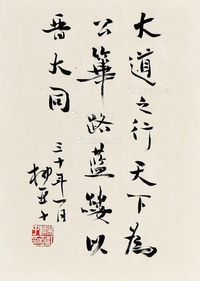 大道之行天下為
公篳路藍縷以
晉大同
三十年一月
柳亞子